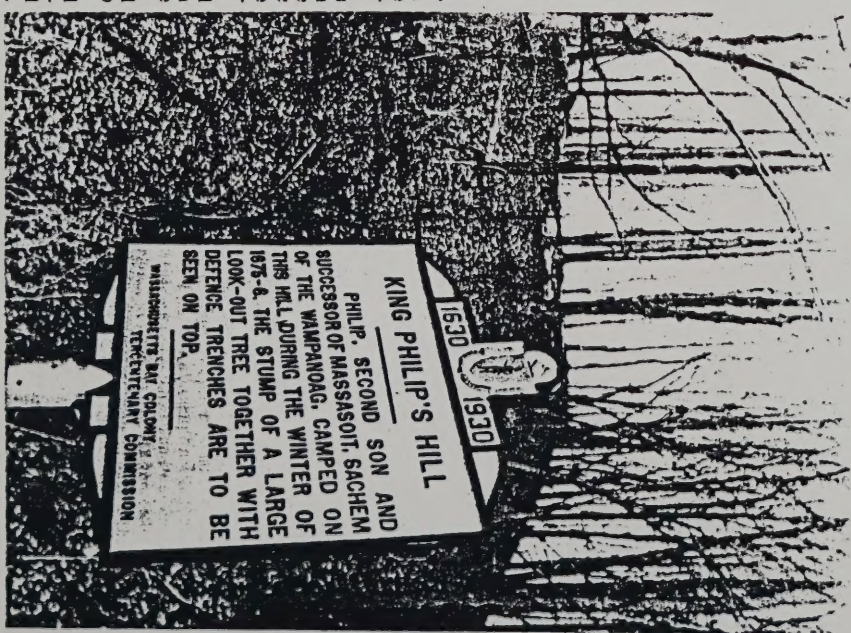 1630 1930
KING PHILIP'S HILL
PHILIP, SECOND SON AND
SUCCESSOR OF MASSASOIT, SACHEM
OF THE WAMPANOAG, CAMPED ON
THIS HILL DURING THE WINTER OF
1675-6. THE STUMP OF A LARGE
LOOK-OUT TREE TOGETHER WITH
DEFENCE TRENCHES ARE TO BE
SEEN ON TOP.
MASSACHUSETTS BAY COLONY
TERCENTENARY COMMISSION